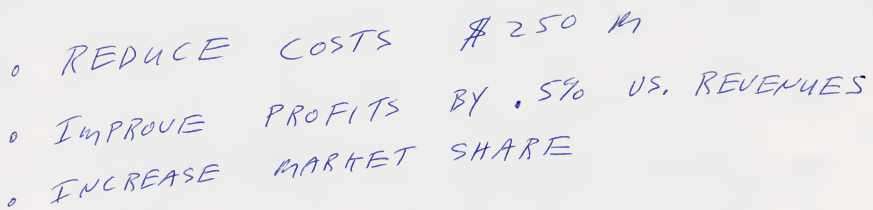 • REDUCE COSTS $250 M
• IMPROVE PROFITS BY .5% VS. REVENUES
• INCREASE MARKET SHARE